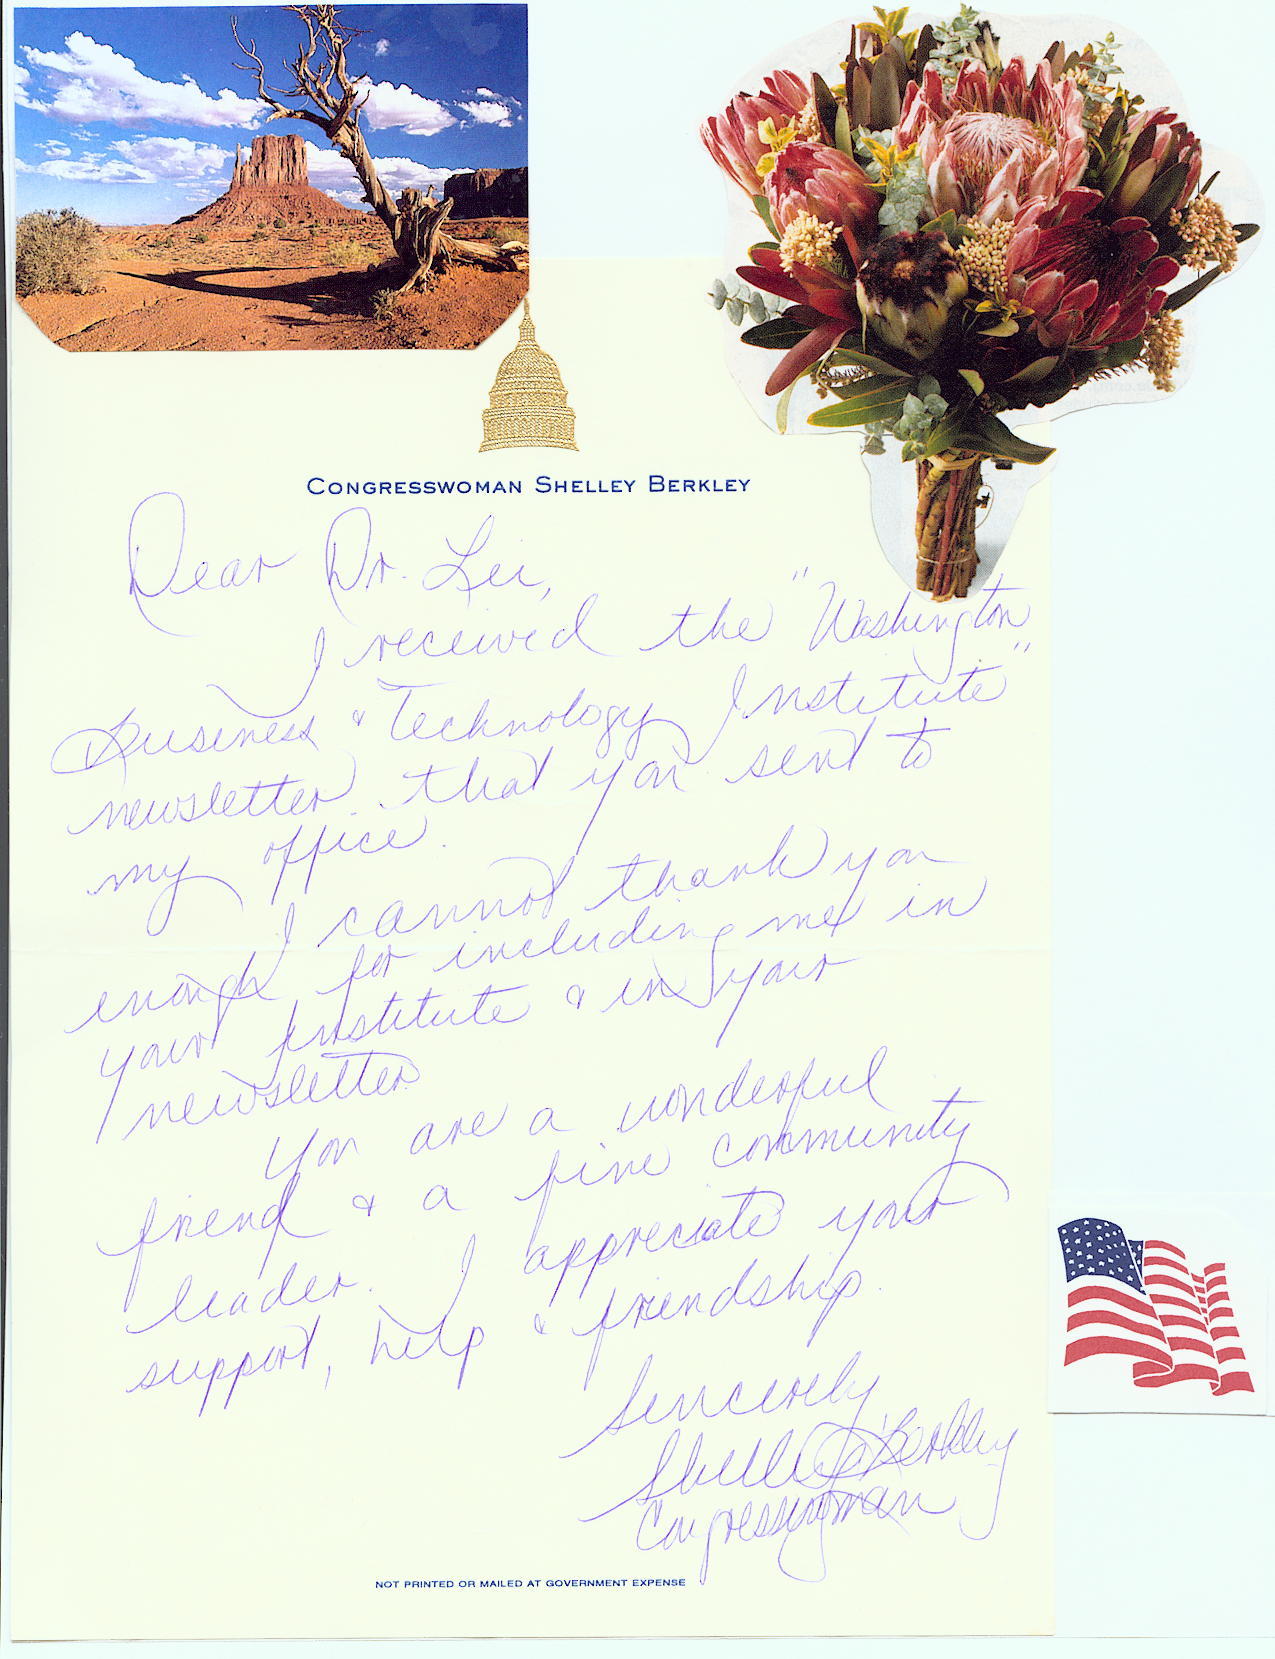 CONGRESSWOMAN SHELLEY BERKLEY
Dear Dr. Lu,
I received the "Washington
Business & Technology Institute"
newsletter that you sent to
my office.
I cannot thank you
enough for including me in
your Institute & in your
newsletter.
You are a wonderful
friend & a fine community
leader. I appreciate your
support, help & friendship.
Sincerely
Shelley Berkley
Congresswoman
NOT PRINTED OR MAILED AT GOVERNMENT EXPENSE